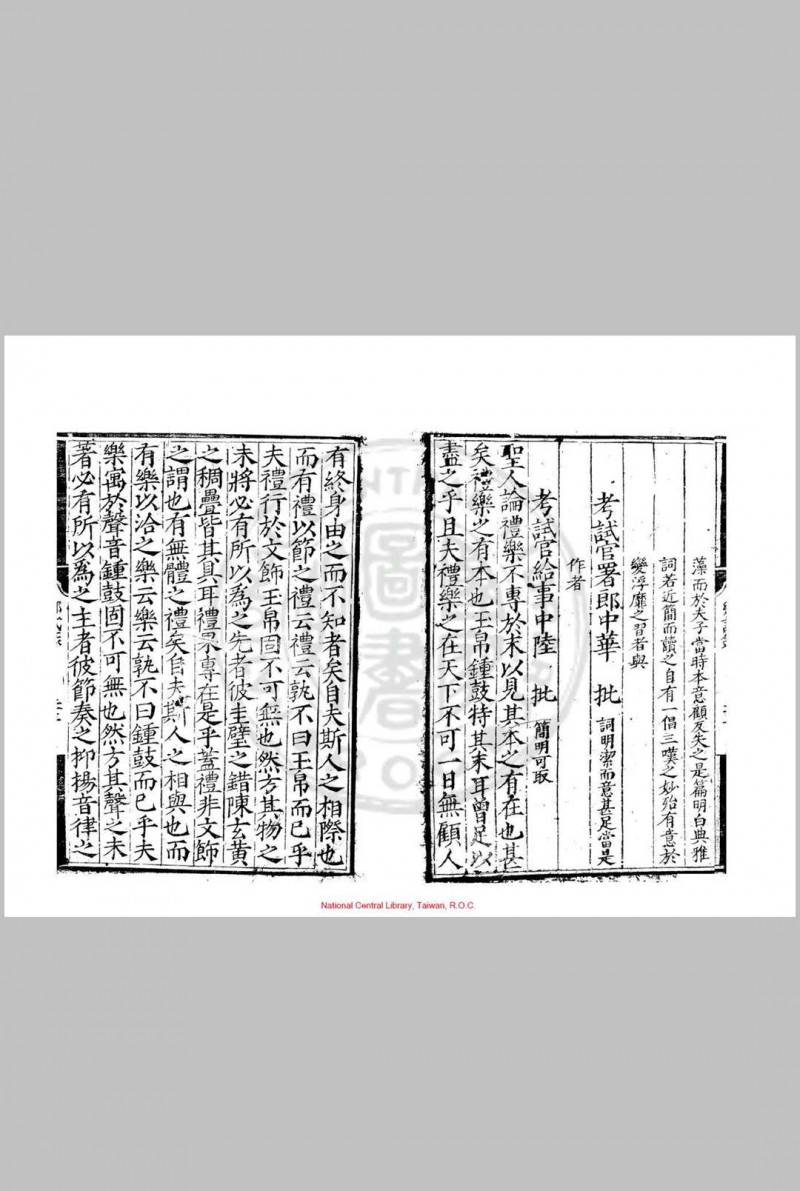 藻而於夫子當時本意顧反失之是篇明白典雅
詞若近簡而讀之自有一倡三嘆之妙殆有意於
變浮靡之習者與
考試官署郎中華 批 詞明潔而意甚足當是
作者
考試官給事中陸 批 簡明可取
聖人論禮樂不專於末以見其本之有在也甚
矣禮樂之有本也玉帛鍾鼓特其末耳曾足以
盡之乎且夫禮樂之在天下不可一日無顧人
有終身由之而不知者矣自夫斯人之相際也
而有禮以節之禮云禮云孰不曰玉帛而已乎
夫禮行於文飾玉帛固不可無也然方其物之
未將必有所以為之先者彼圭璧之錯陳玄黃
之稠疊皆其具耳禮果專在是乎蓋禮非文飾
之謂也有無體之禮矣自夫斯人之相與也而
有樂以洽之樂云樂云孰不曰鍾鼓而已乎夫
樂寓於聲音鍾鼓固不可無也然方其聲之未
著必有所以為之主者彼節奏之抑揚音律之
National Central Library, Taiwan, R.O.C.